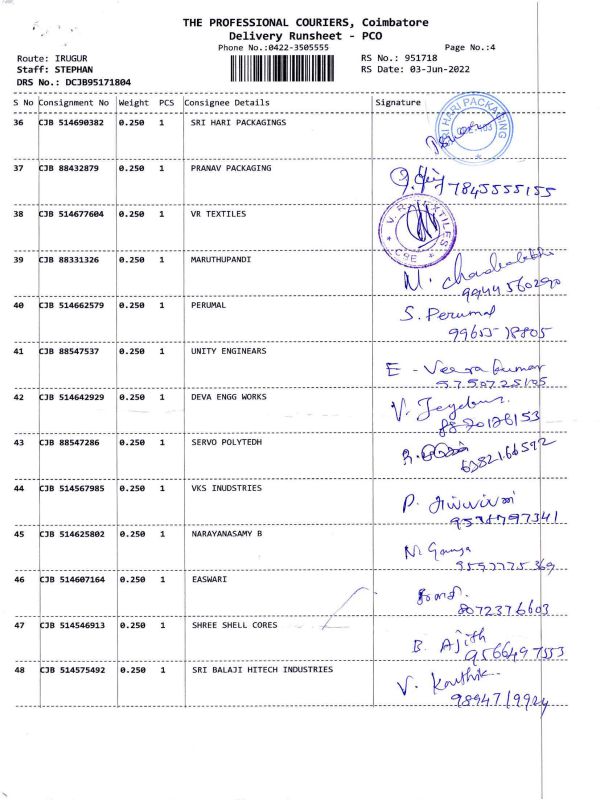 THE PROFESSIONAL COURIERS, Coimbatore
Delivery Runsheet - PCO
Phone No.:0422-3505555 Page No.:4
Route: IRUGUR RS No.: 951718
Staff: STEPHAN RS Date: 03-Jun-2022
DRS No.: DCJB95171804
S No Consignment No Weight PCS Consignee Details Signature
36 CJB 514690382 0.250 1 SRI HARI PACKAGINGS
SRI HARI PACKAGING
37 CJB 88432879 0.250 1 PRANAV PACKAGING
7845555155
38 CJB 514677604 0.250 1 VR TEXTILES
V. R. TEXTILES
CBE
39 CJB 88331326 0.250 1 MARUTHUPANDI M.
9944560290
40 CJB 514662579 0.250 1 PERUMAL S. Perumal
99655 18805
41 CJB 88547537 0.250 1 UNITY ENGINEARS E - Veera kumar
42 CJB 514642929 0.250 1 DEVA ENGG WORKS V.
43 CJB 88547286 0.250 1 SERVO POLYTEDH
6382166592
44 CJB 514567985 0.250 1 VKS INUDSTRIES P.
45 CJB 514625802 0.250 1 NARAYANASAMY B
46 CJB 514607164 0.250 1 EASWARI
8072376603
47 CJB 514546913 0.250 1 SHREE SHELL CORES B. Ajith
9566497553
48 CJB 514575492 0.250 1 SRI BALAJI HITECH INDUSTRIES V. Karthik.
9894719924